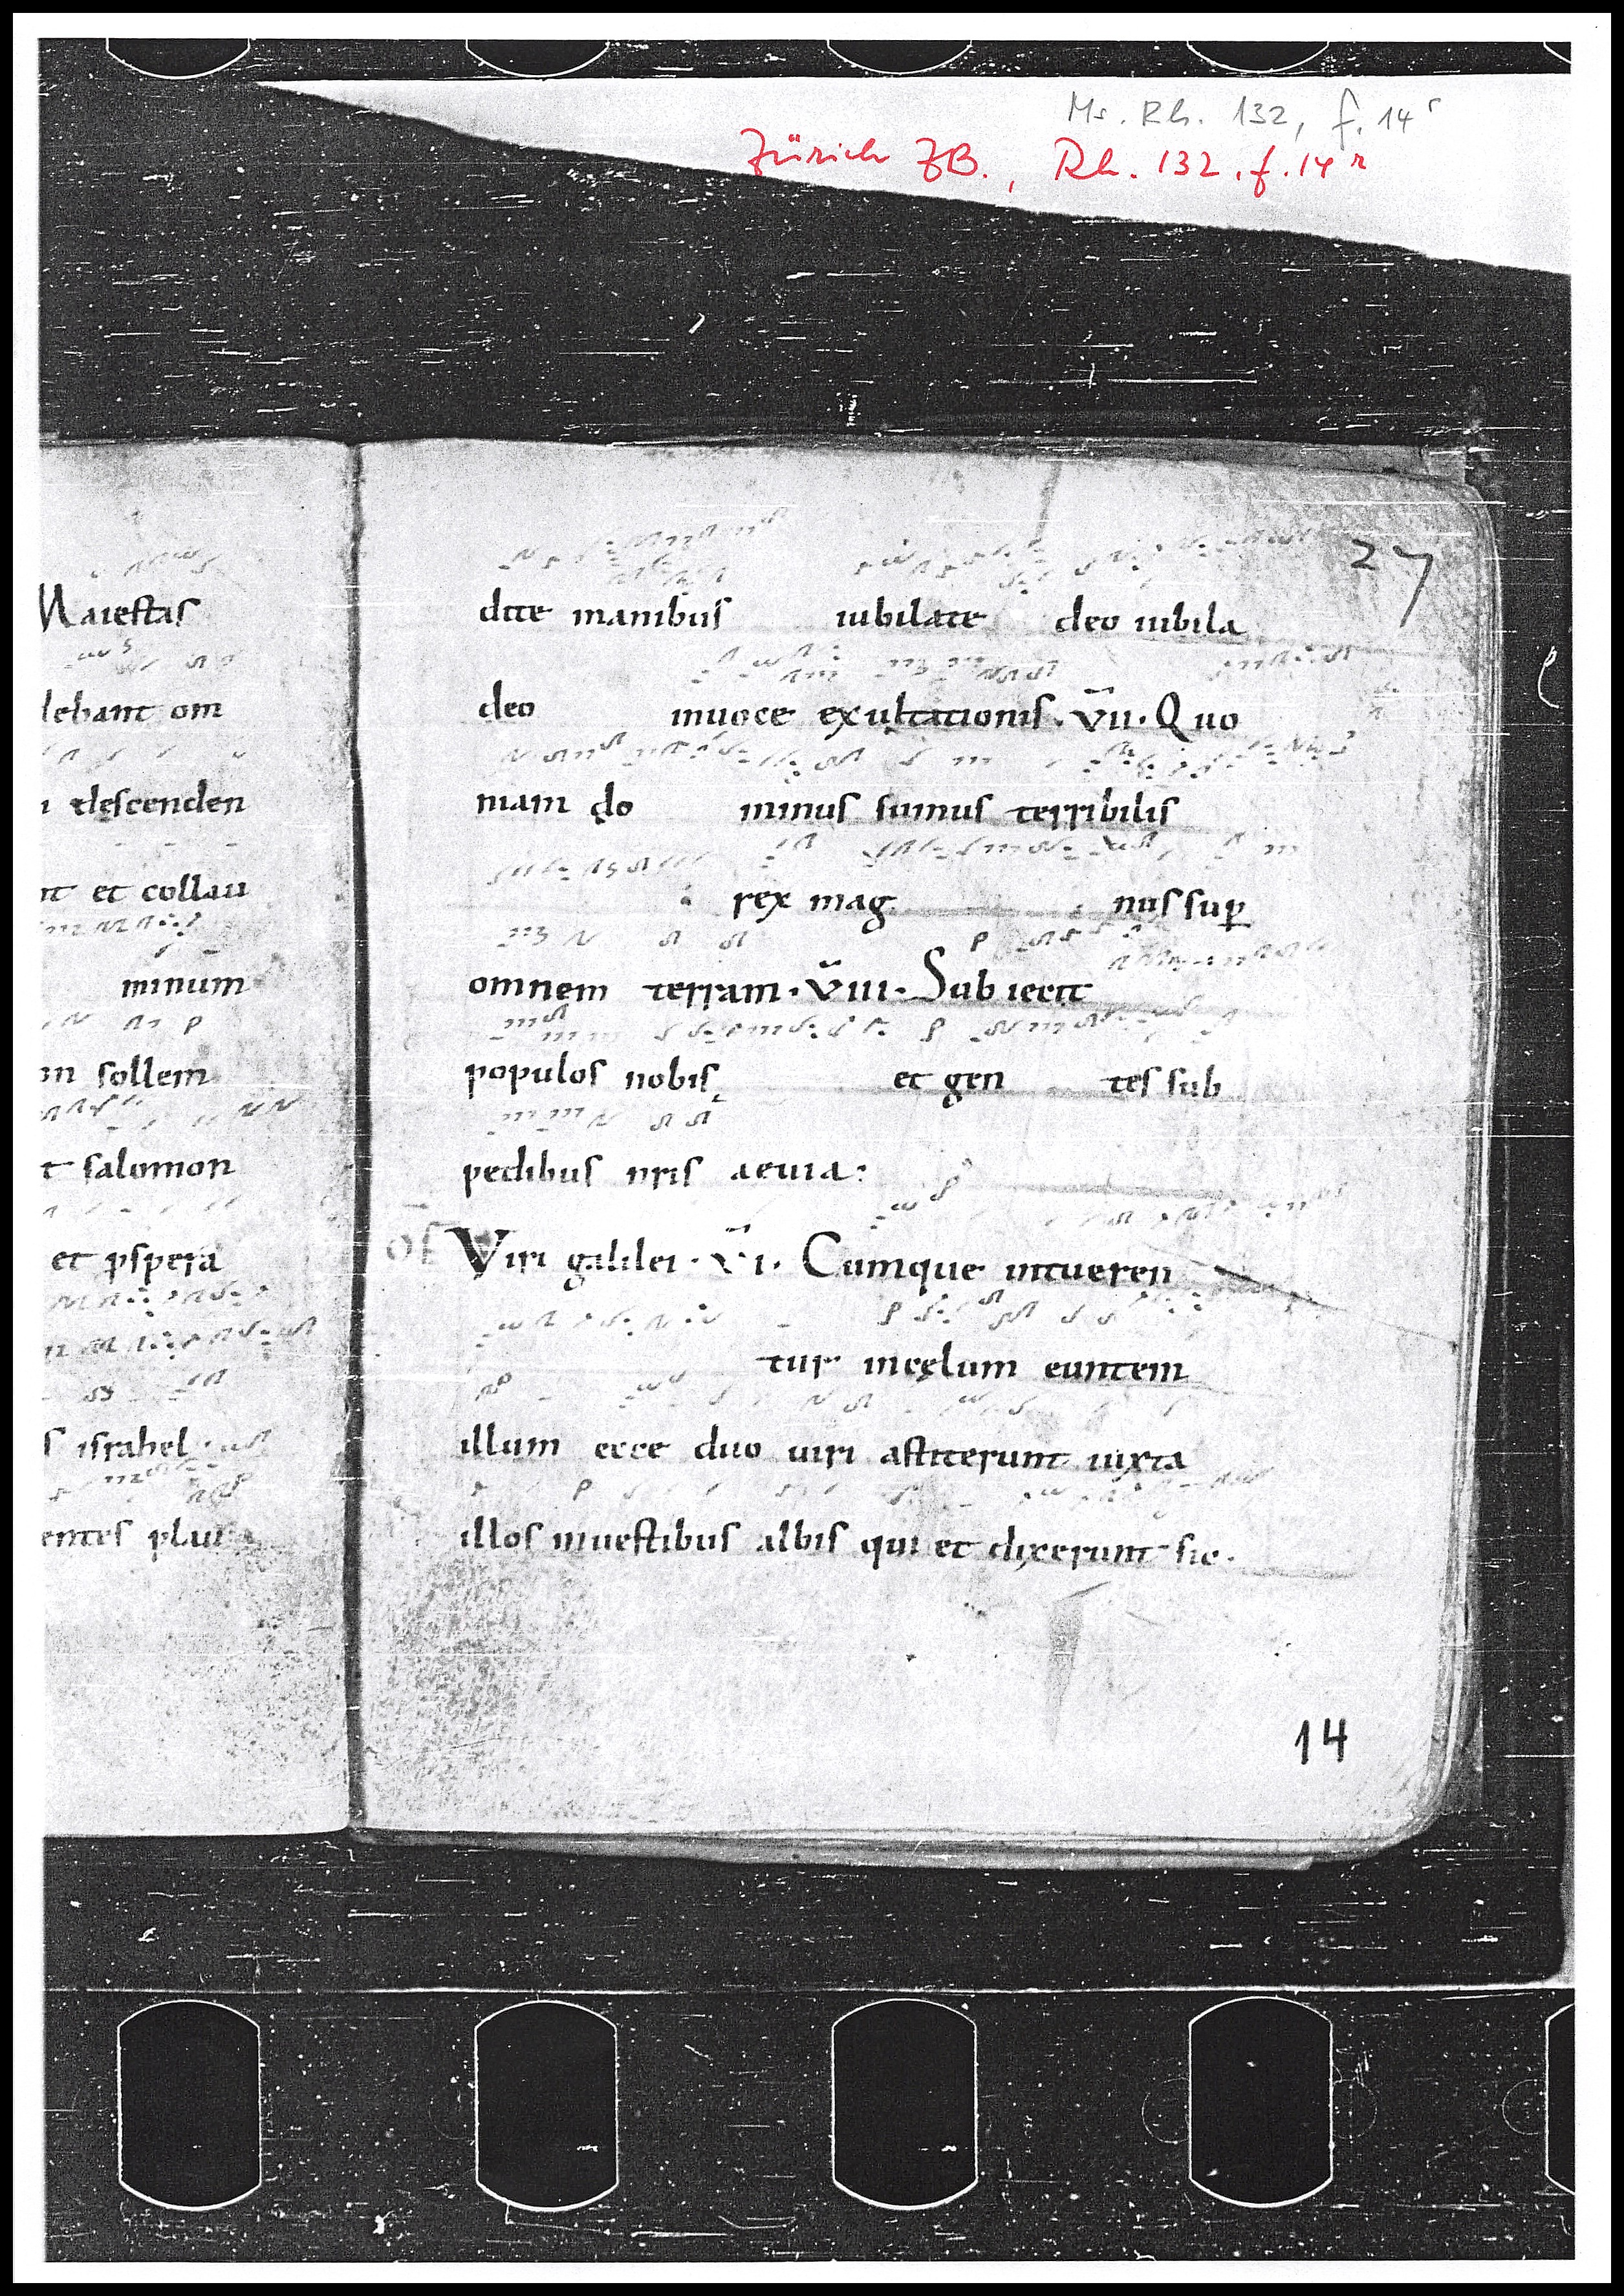 Ms. Rh. 132, f. 14r
Zürich ZB., Rh. 132, f. 14r
27
Maiestas
lebant om
descenden
et collau
minum
sollem
salomon
et ꝓspera
israhel
entes plau
dite manibus iubilate deo iubila
deo inuoce exultationis. V̄II. Quo
niam do minus summus terribilis
rex mag nus suꝑ
omnem terram. V̄III. Subiecit
populos nobis et gen tes sub
pedibus nris aeuia:
OF Viri galilei. V̄I. Cumque intueren
tur incęlum euntem
illum ecce duo uiri astiterunt iuxta
illos inuestibus albis qui et dixerunt sic.
14